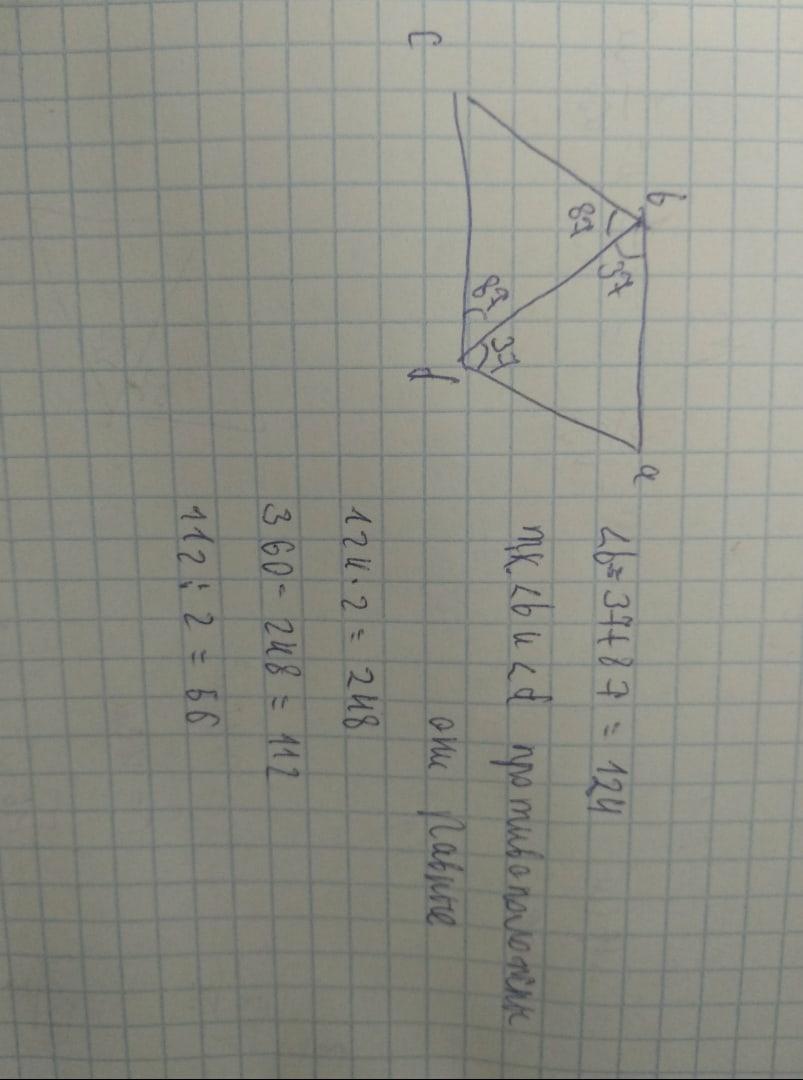 c
b
87
37
87
37
d
a
∠b = 37+87 = 124
тк. ∠b и ∠d противоположны
они равные
124·2 = 248
360 - 248 = 112
112 : 2 = 56